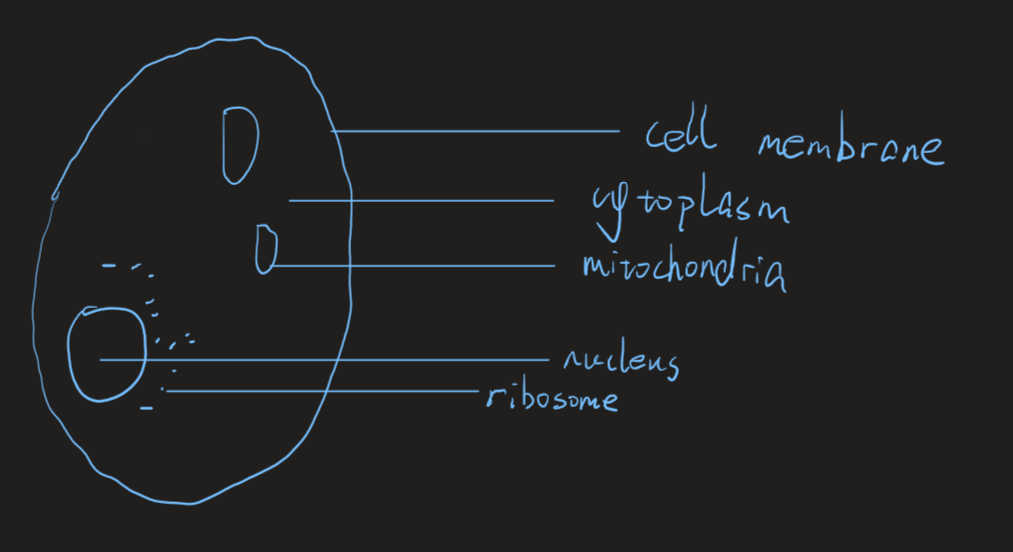 cell membrane
cytoplasm
mitochondria
nucleus
ribosome